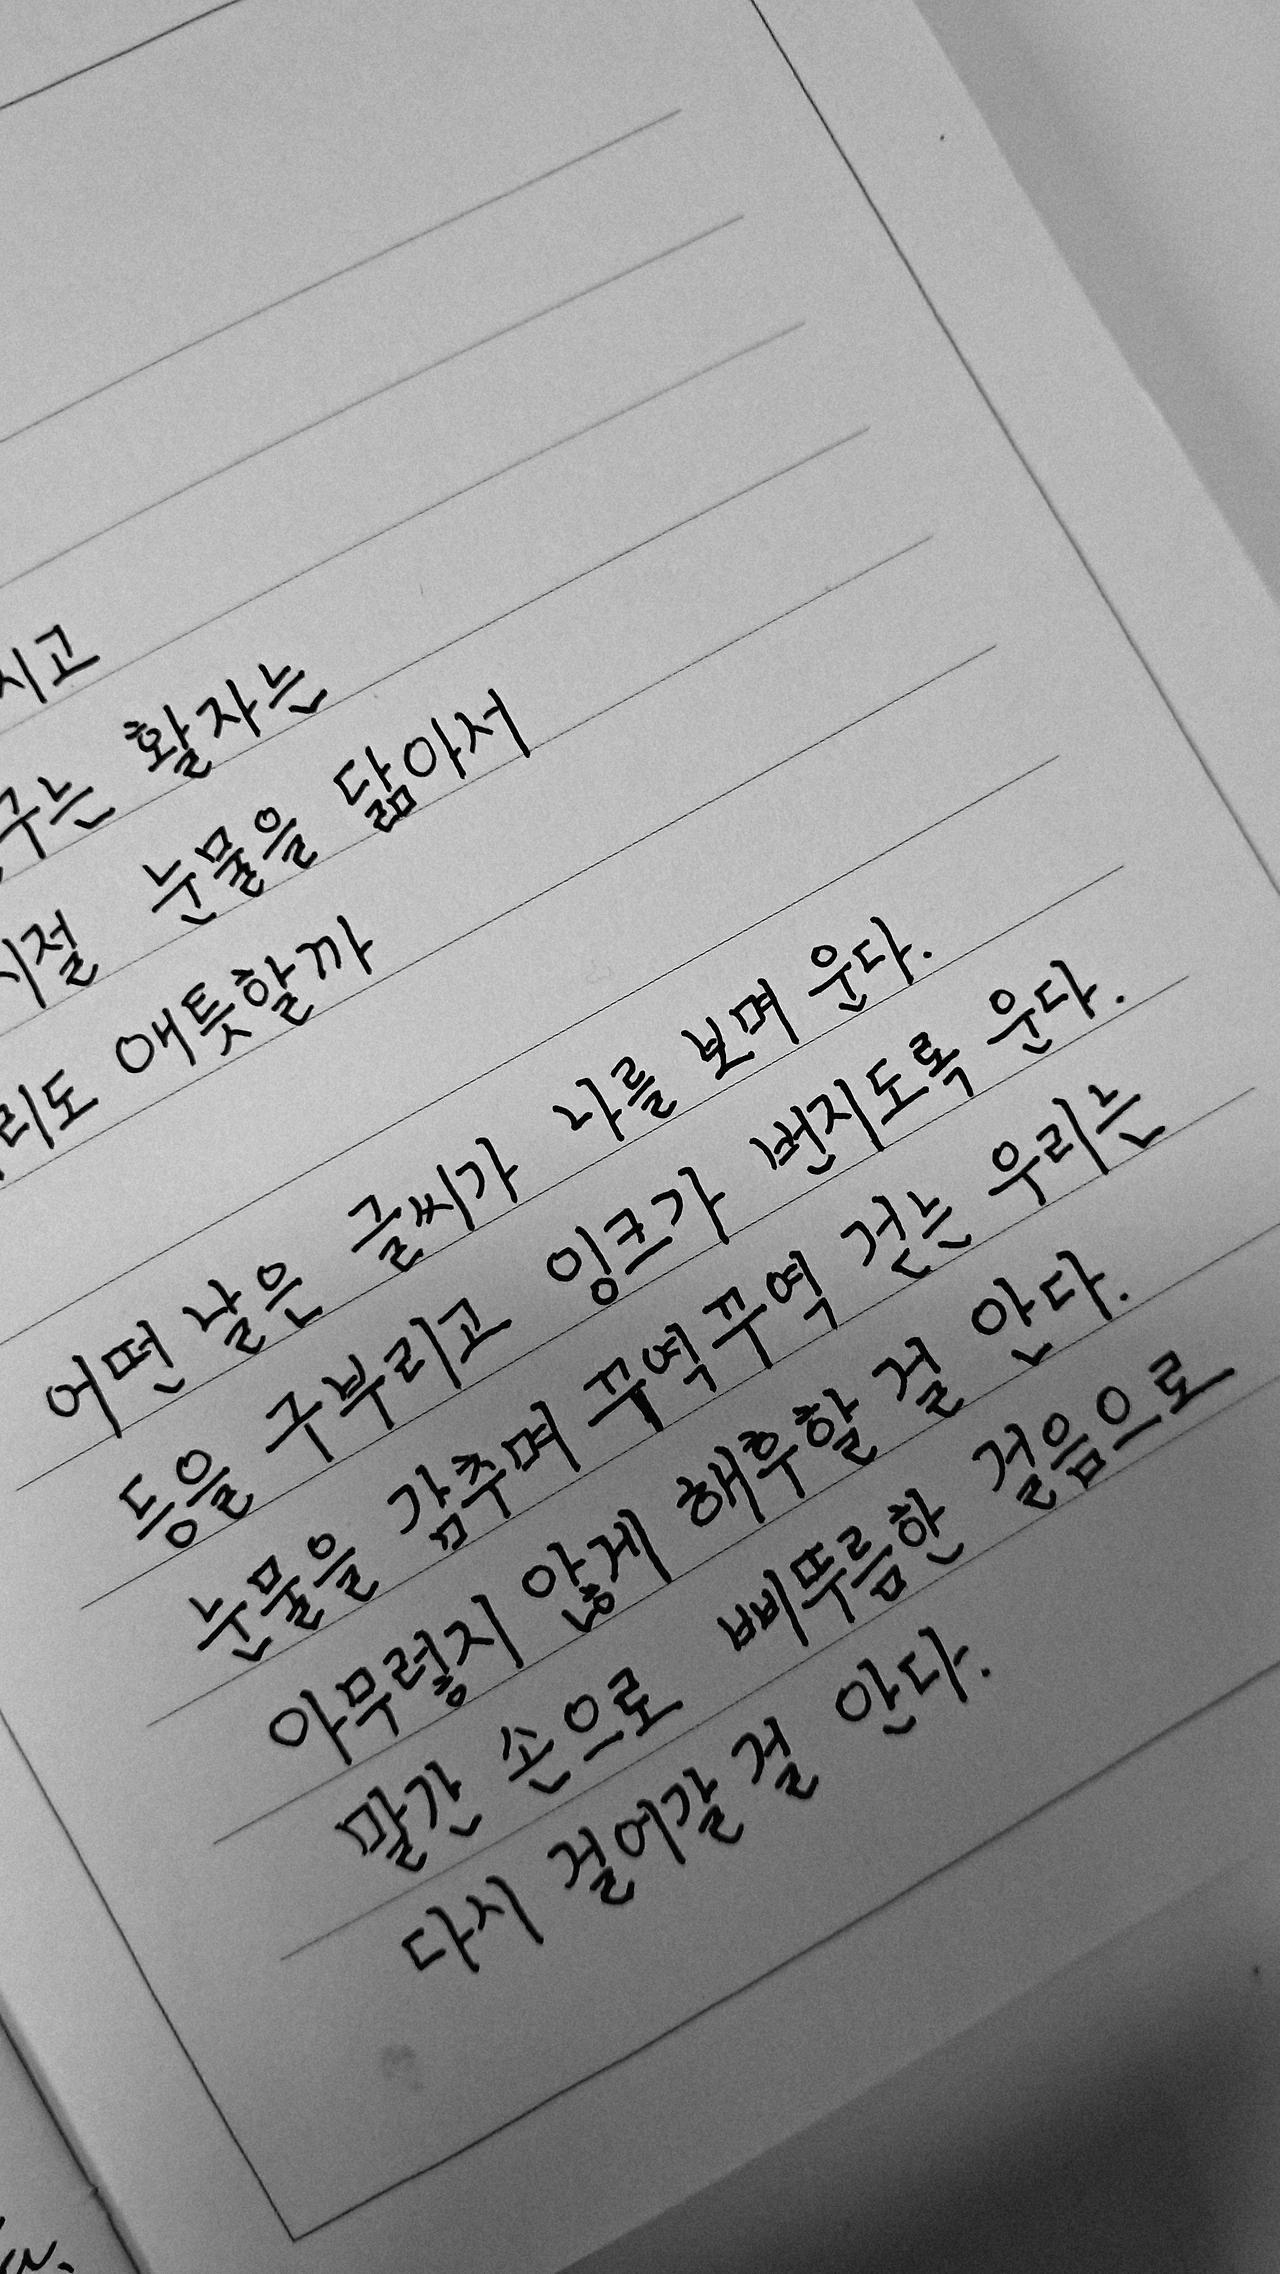 시고
구는 활자는
시절 눈물을 닮아서
리도 애틋할까
어떤 날은 글씨가 나를 보며 운다.
등을 구부리고 잉크가 번지도록 운다.
눈물을 감추며 꾸역꾸역 걷는 우리는
아무렇지 않게 해후할 걸 안다.
말간 손으로 삐뚜름한 걸음으로
다시 걸어갈 걸 안다.